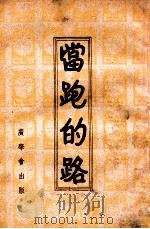 當跑的路
廣學會出版
www.toutu.com